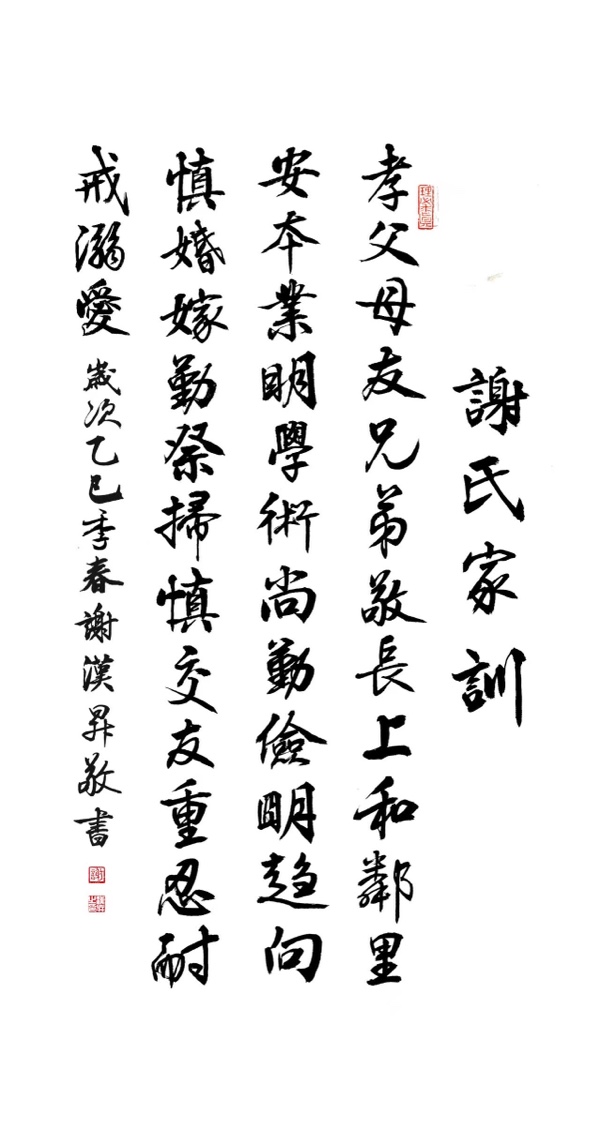 謝氏家訓
孝父母友兄弟敬長上和鄰里
安本業明學術尚勤儉明趨向
慎婚嫁勤祭掃慎交友重忍耐
戒溺愛
歲次乙巳季春謝漢昇敬書